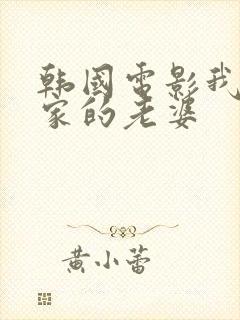 韩國电影我
家的老婆
黄小蕾